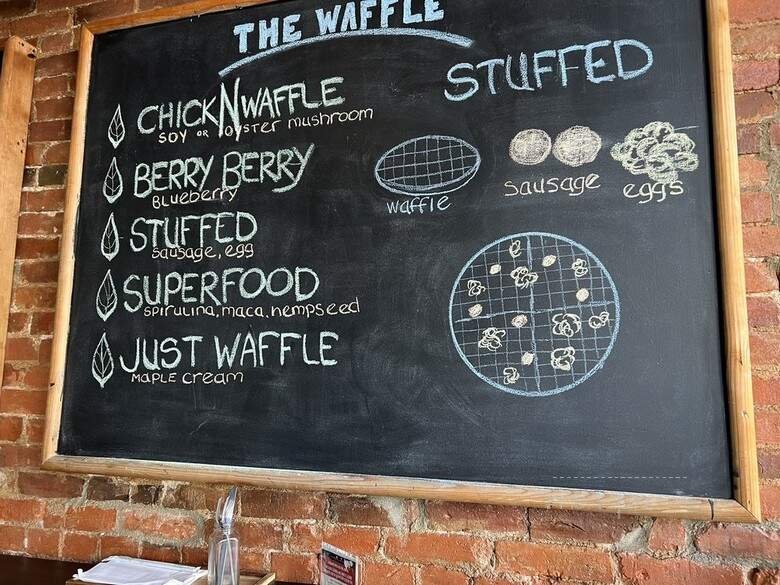 THE WAFFLE
CHICKNWAFFLE
SOY OR OYSTER mushroom
BERRY BERRY
BLueberry
STUFFED
sausage, egg
SUPERFOOD
spirulina, maca, hempseed
JUST WAFFLE
MAPLE cream
STUFFED
waffle
sausage
eggs